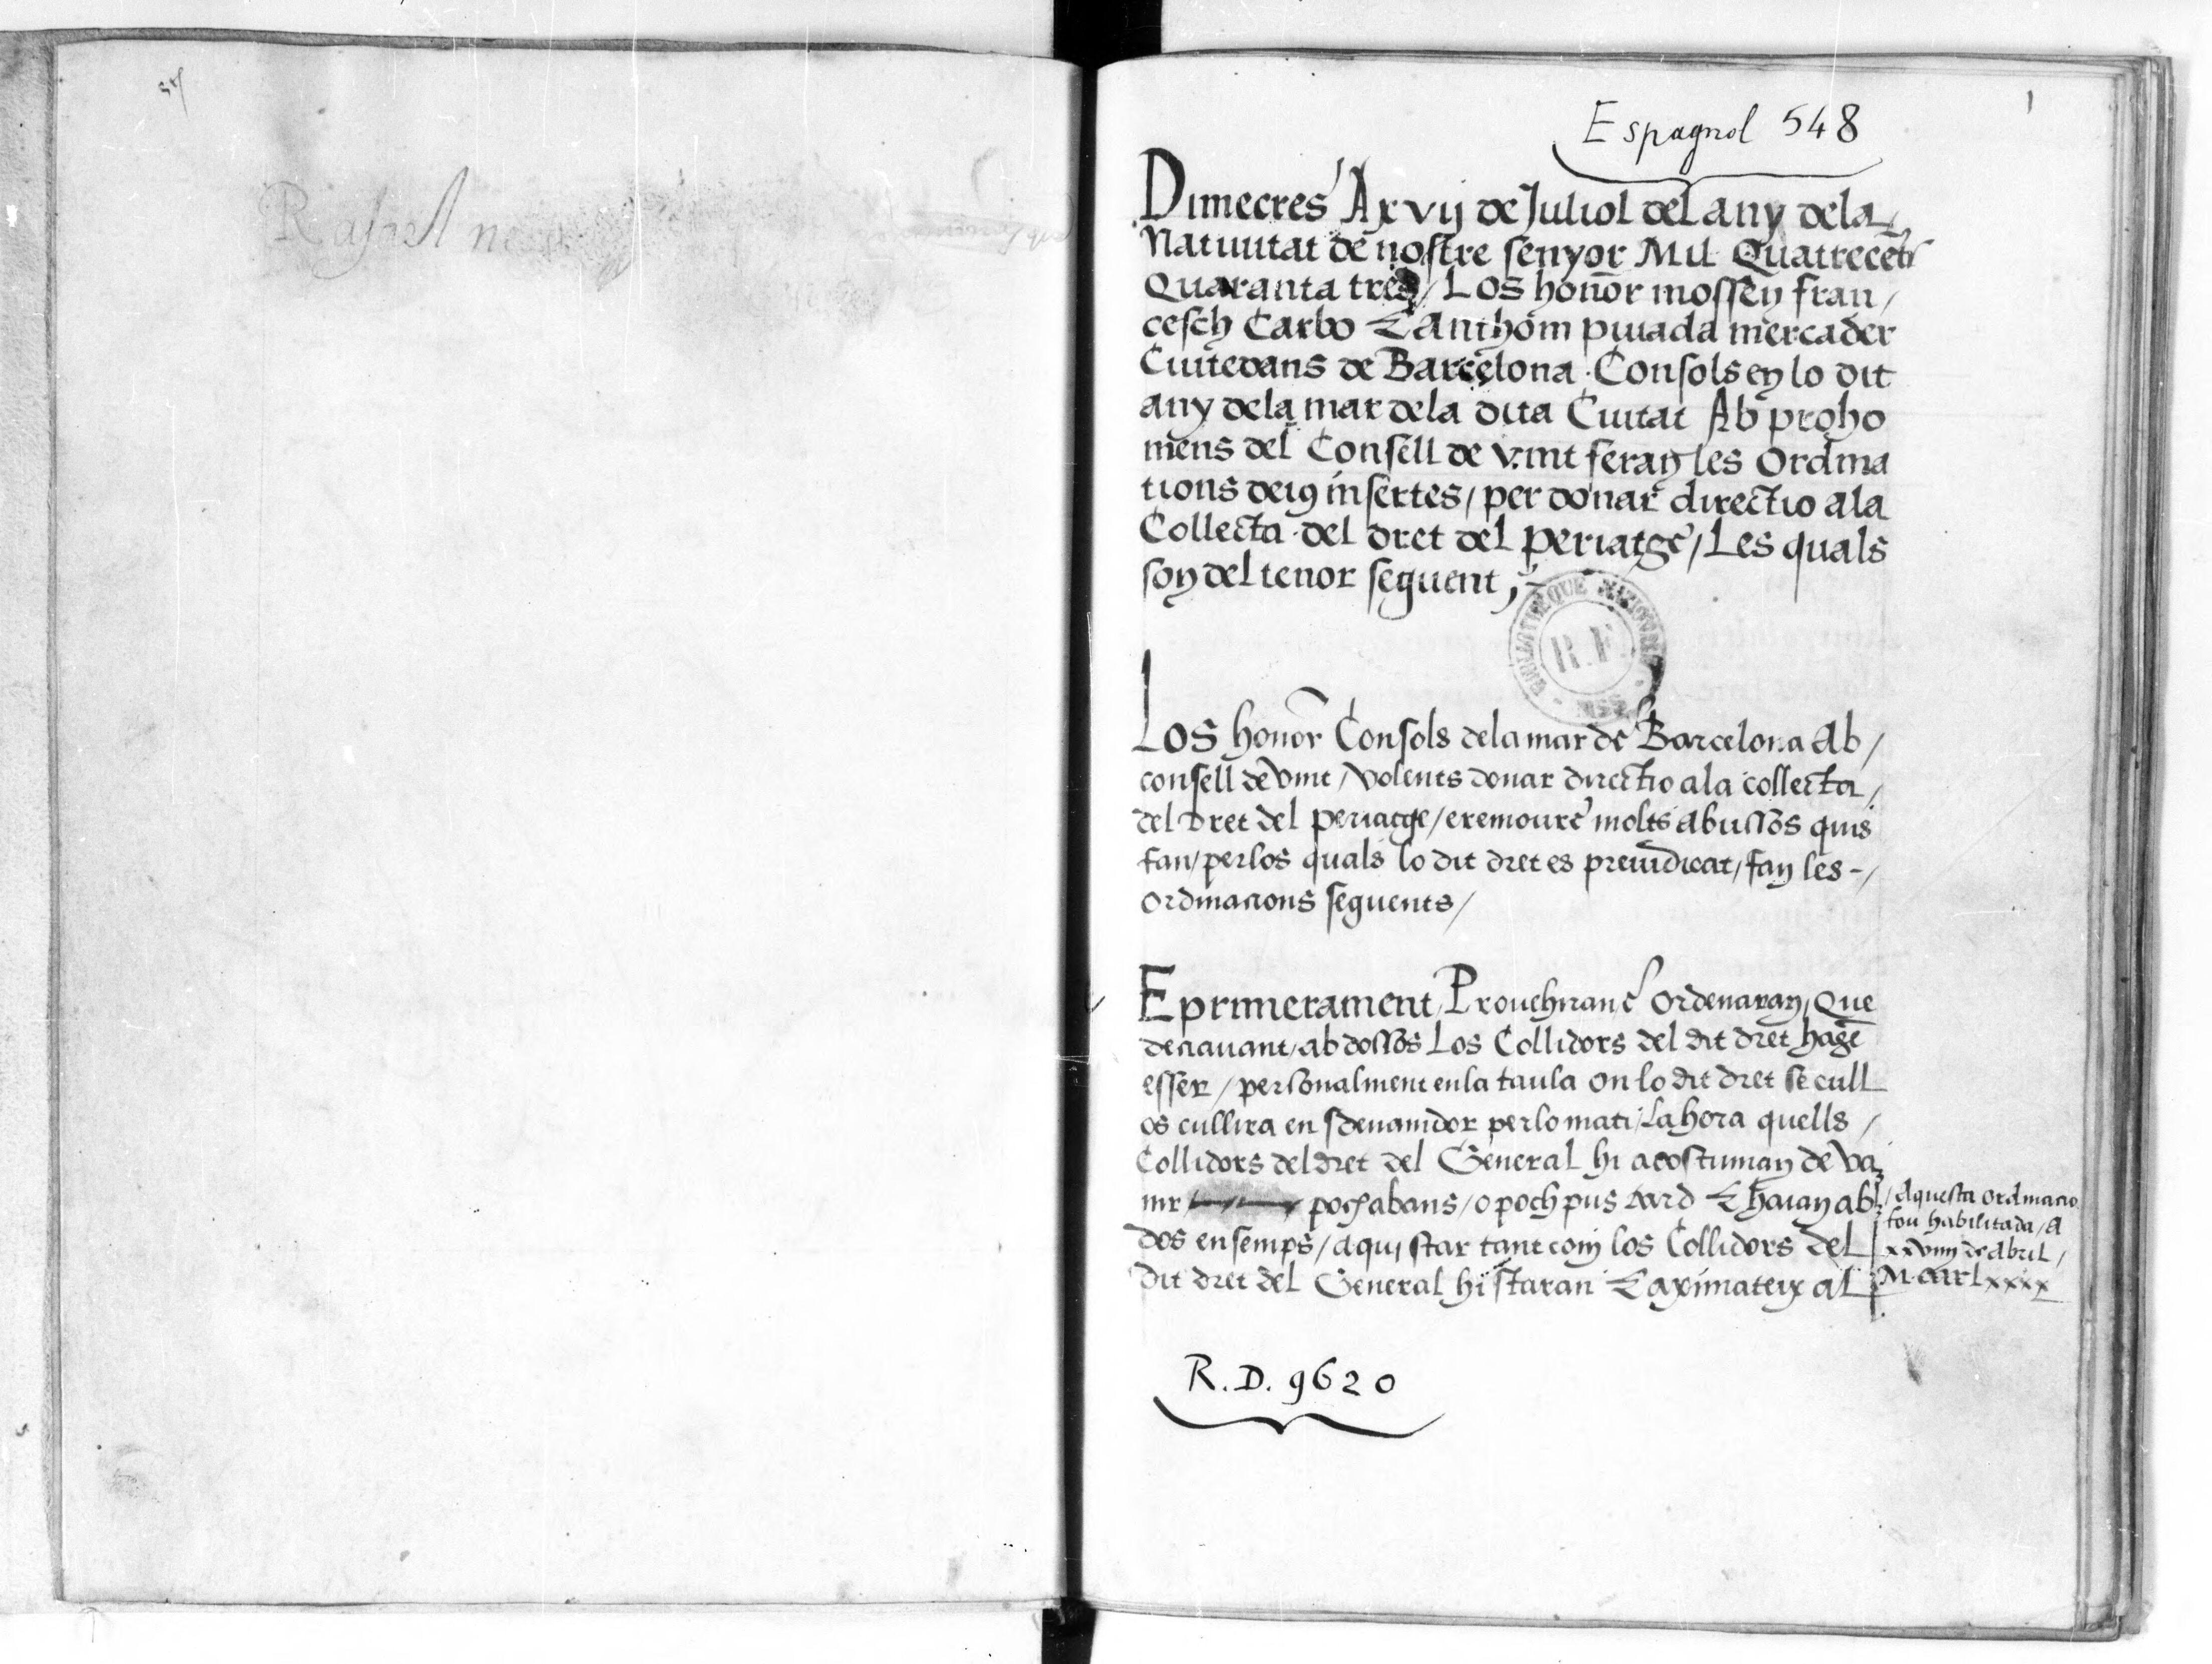 Espagnol 548
1
Dimecres A xvij de Juliol del any dela
Natiuitat de nostre senyor Mil Quatrecēts
Quaranta tres / Los honor mossen fran /
cesch Carbo E Anthōni puiada mercader
Ciutedans de Barcelona. Consols en lo dit
any dela mar dela dita Ciutat Ab proho
mens del Consell de vint feran les Ordina
tions deius insertes / per donar directio ala
Collecta del dret del periatge / Les quals
son del tenor seguent,
BIBLIOTHEQUE NATIONALE
R.F.
MSS
Los honor Consols dela mar de Barcelona Ab /
consell de vint / volents donar directio ala collecta /
del dret del periatge / e remoure molts abusos quis
fan / per los quals lo dit dret es preiudicat / fan les - /
ordinacions seguents /
E primerament Prouehiran e ordenaran, que
deciauant / abdosos Los Collidors del dit dret hagē
esser / personalment en la taula on lo dit dret se cull
os cullira en sdeuanidor per lo mati / La hora quells /
Collidors del dret del General hi acostuman de va
nir poch abans / o poch pus tard E haian ab
dos ensemps / aqui star tant com los Collidors del
dit dret del General hi staran E aximateix al
/ Aquesta ordinacio
fou habilitada / A
xxviiij de Abril /
M cccc lxxxx
R.D. 9620